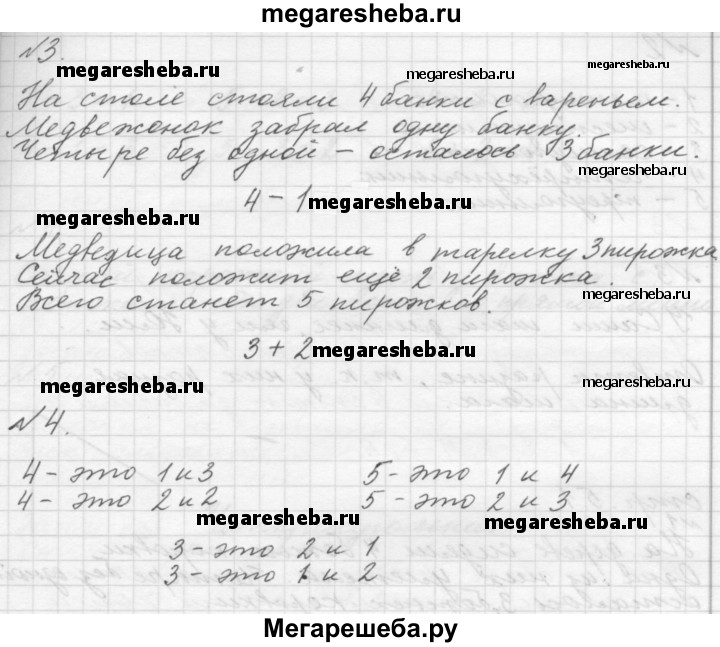 megaresheba.ru
№3.
megaresheba.ru megaresheba.ru megaresheba.ru
На столе стояли 4 банки с вареньем.
Медвежонок забрал одну банку.
Четыре без одной – осталось 3 банки.
megaresheba.ru
4 – 1 megaresheba.ru
megaresheba.ru
Медведица положила в тарелку 3 пирожка
Сейчас положит ещё 2 пирожка.
Всего станет 5 пирожков.
megaresheba.ru
3 + 2 megaresheba.ru
megaresheba.ru megaresheba.ru
№4.
4 – это 1 и 3 5 – это 1 и 4
4 – это 2 и 2 5 – это 2 и 3
megaresheba.ru megaresheba.ru
3 – это 2 и 1
3 – это 1 и 2
Мегарешеба.ру